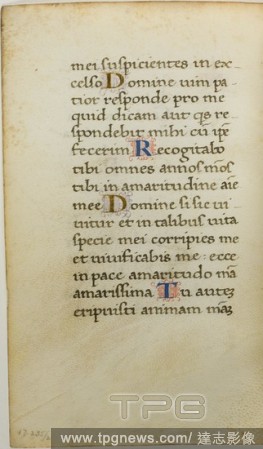 mei suspicientes in ex
celso Domine uim pa
tior responde pro me
quid dicam aut qs re
spondebit mihi cū ipe
fecerim Recogitabo
tibi omnes annos mōs
tibi in amaritudine aīe
mee Domine si sic ui
uitur et in talibus uita
specie mei corripies me
et uiuificabis me: ecce
in pace amaritudo mā
amarissima Tu autez
eripuisti animam maz
TPG
www.tpgnews.com/ 達志影像